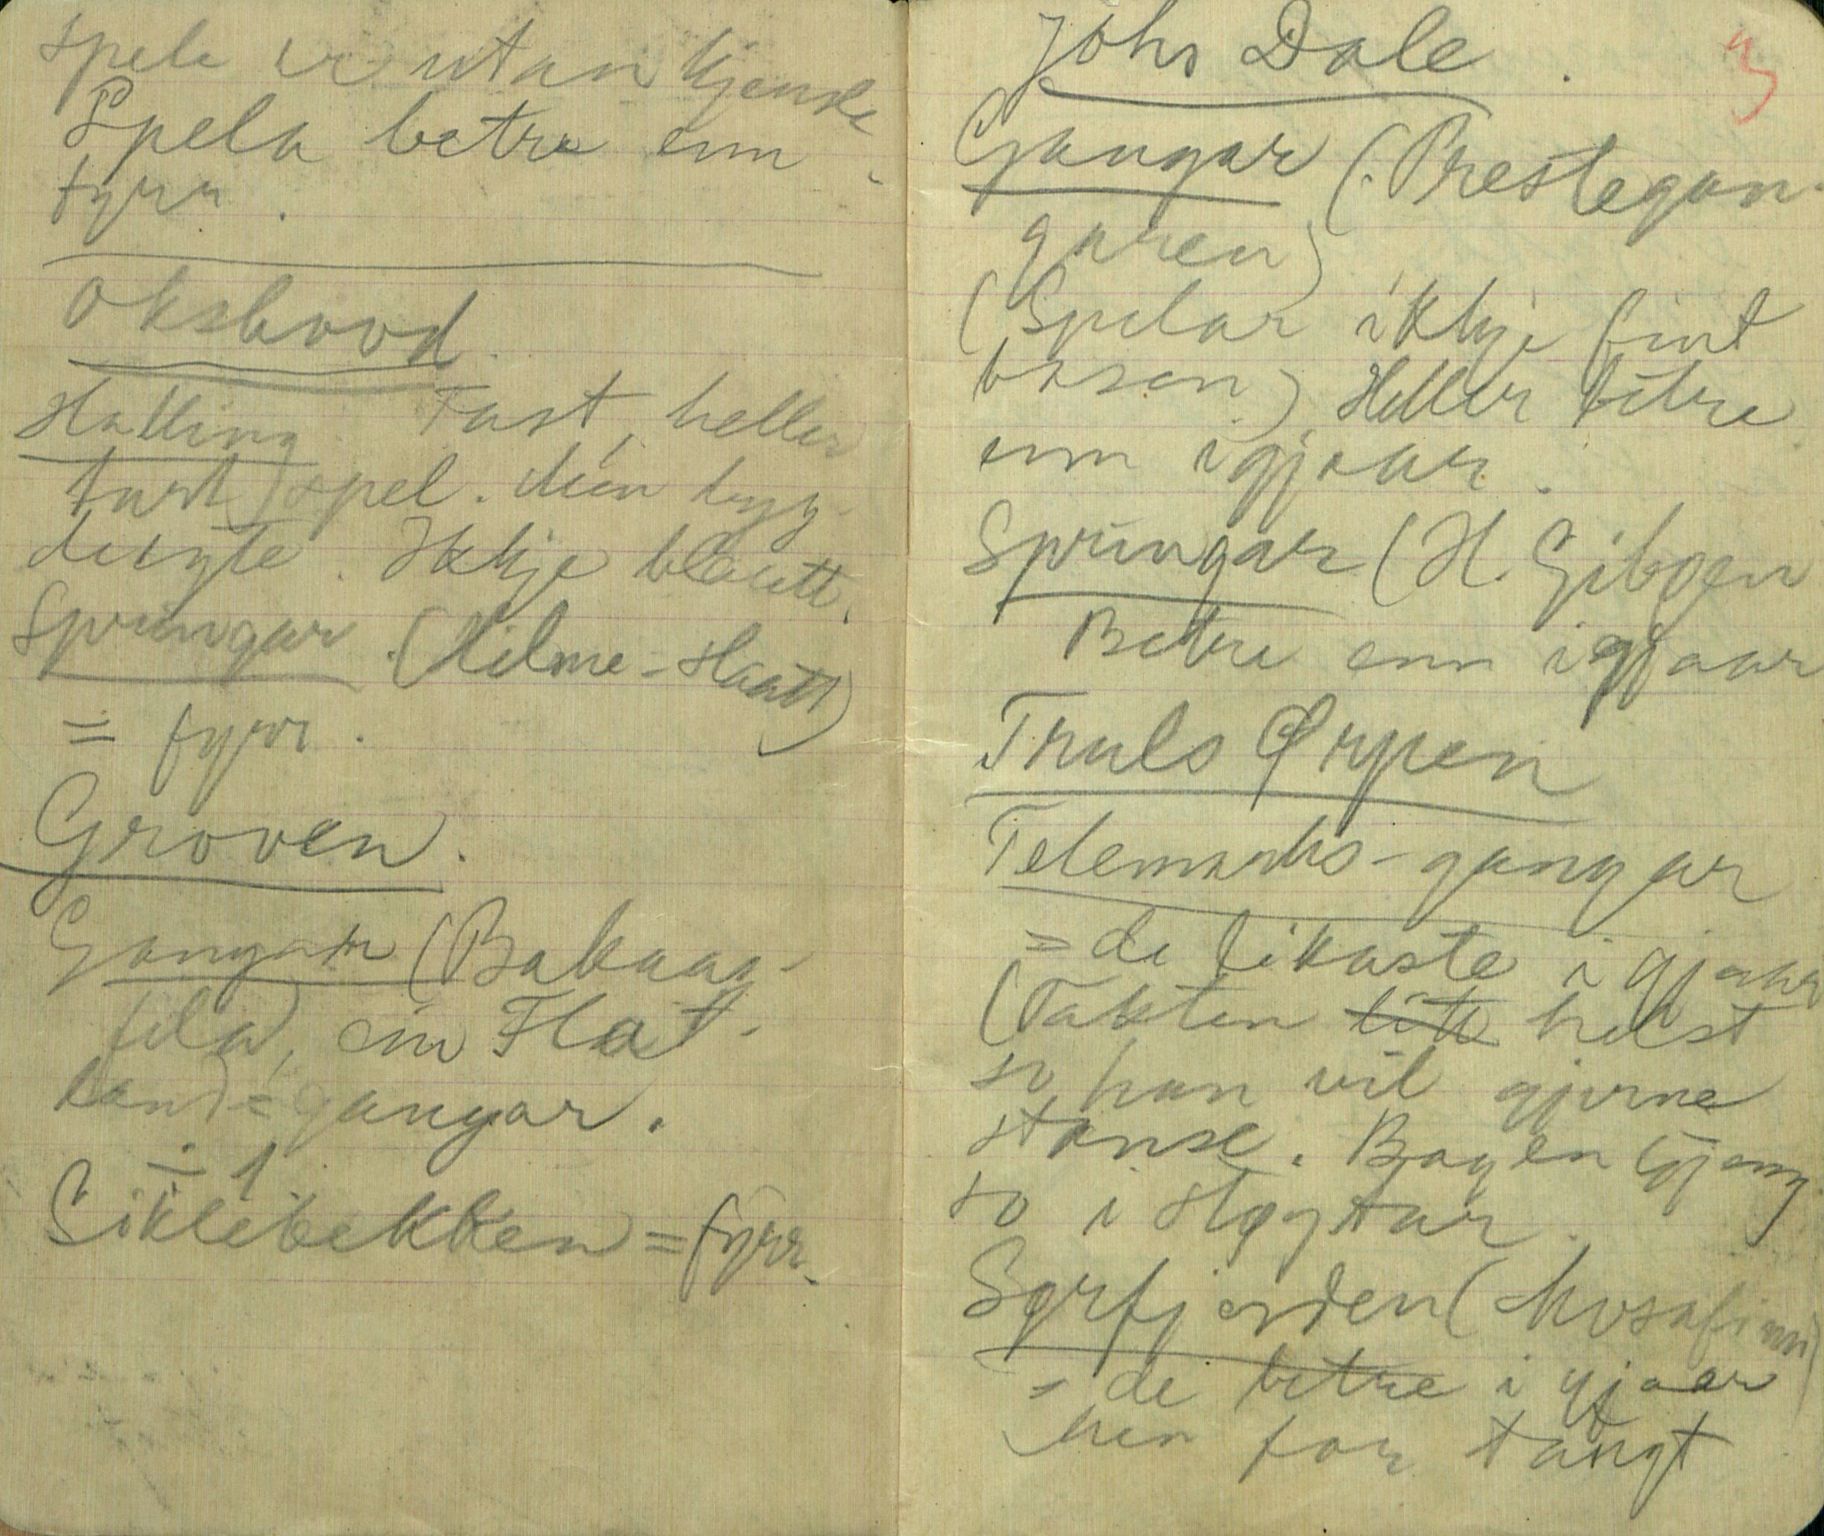 spele er utan kjensle
Spela betre enn
fyrr.
Okshovd.
Halling. Fast, heller
hardt spel. Men dug-
delegte. Ikkje blautt.
Springar. (Hilme-Slaatt)
= fyrr.
Groven.
Gangar (Bakaag-
fela), ein Flat-
land = gangar.
÷ 1
Siklebekken = fyrr.
John Dale.
3
Gangar (Prestegan-
garen)
(Spelar ikkje fint
basen). Heller betre
enn igjaar.
Springar (H. Gibøen
Betre enn igjaar
Truls Ørpen
Telemarks-gangar
= de likaste i gjaar
(Takten litt helst
so han vil gjerne
stanse. Bogen gjeng
so i støytar.
Sørfjorden (Mosafinn)
= de betre i gjaar
men for tungt